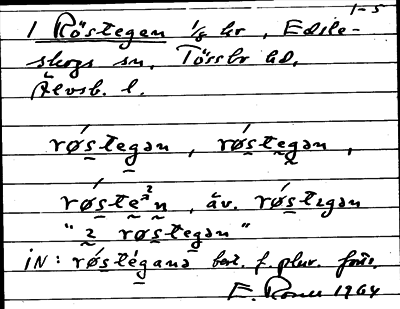 1-5
1 Röstegen 1/8 hr, Edsle-
skogs sn. Tössbo hd.
Älvsb. l.
røstegən, røstegən,
røsteᵊ²n, äv. røstɛgən
"2 røstegən"
IN: røstégana best. f. plur. förr.
1964